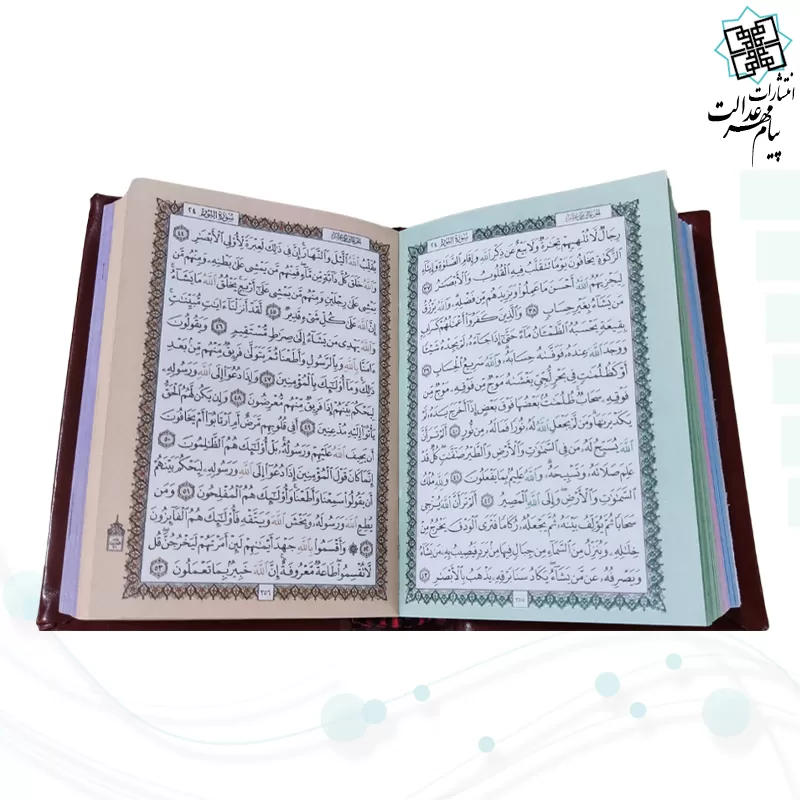 انتشارات
پیام مهر عدالت
سُورَةُ النُّورِ ٢٤
رِجَالٌ لَّا تُلْهِيهِمْ تِجَٰرَةٌ وَلَا بَيْعٌ عَن ذِكْرِ ٱللَّهِ وَإِقَامِ ٱلصَّلَوٰةِ وَإِيتَآءِ
ٱلزَّكَوٰةِ يَخَافُونَ يَوْمًا تَتَقَلَّبُ فِيهِ ٱلْقُلُوبُ وَٱلْأَبْصَٰرُ ٣٧
لِيَجْزِيَهُمُ ٱللَّهُ أَحْسَنَ مَا عَمِلُوا۟ وَيَزِيدَهُم مِّن فَضْلِهِۦ وَٱللَّهُ يَرْزُقُ
مَن يَشَآءُ بِغَيْرِ حِسَابٍ ٣٨ وَٱلَّذِينَ كَفَرُوٓا۟ أَعْمَٰلُهُمْ كَسَرَابٍۭ
بِقِيعَةٍ يَحْسَبُهُ ٱلظَّمْـَٔانُ مَآءً حَتَّىٰٓ إِذَا جَآءَهُۥ لَمْ يَجِدْهُ شَيْـًٔا
وَوَجَدَ ٱللَّهَ عِندَهُۥ فَوَفَّىٰهُ حِسَابَهُۥ وَٱللَّهُ سَرِيعُ ٱلْحِسَابِ ٣٩
أَوْ كَظُلُمَٰتٍ فِى بَحْرٍ لُّجِّىٍّ يَغْشَىٰهُ مَوْجٌ مِّن فَوْقِهِۦ مَوْجٌ مِّن
فَوْقِهِۦ سَحَابٌ ظُلُمَٰتٌۢ بَعْضُهَا فَوْقَ بَعْضٍ إِذَآ أَخْرَجَ يَدَهُۥ لَمْ
يَكَدْ يَرَىٰهَا وَمَن لَّمْ يَجْعَلِ ٱللَّهُ لَهُۥ نُورًا فَمَا لَهُۥ مِن نُّورٍ ٤٠ أَلَمْ تَرَ أَنَّ
ٱللَّهَ يُسَبِّحُ لَهُۥ مَن فِى ٱلسَّمَٰوَٰتِ وَٱلْأَرْضِ وَٱلطَّيْرُ صَٰٓفَّٰتٍ كُلٌّ قَدْ
عَلِمَ صَلَاتَهُۥ وَتَسْبِيحَهُۥ وَٱللَّهُ عَلِيمٌۢ بِمَا يَفْعَلُونَ ٤١ وَلِلَّهِ مُلْكُ
ٱلسَّمَٰوَٰتِ وَٱلْأَرْضِ وَإِلَى ٱللَّهِ ٱلْمَصِيرُ ٤٢ أَلَمْ تَرَ أَنَّ ٱللَّهَ يُزْجِى
سَحَابًا ثُمَّ يُؤَلِّفُ بَيْنَهُۥ ثُمَّ يَجْعَلُهُۥ رُكَامًا فَتَرَى ٱلْوَدْقَ يَخْرُجُ مِنْ
خِلَٰلِهِۦ وَيُنَزِّلُ مِنَ ٱلسَّمَآءِ مِن جِبَالٍ فِيهَا مِنۢ بَرَدٍ فَيُصِيبُ بِهِۦ مَن يَشَآءُ
وَيَصْرِفُهُۥ عَن مَّن يَشَآءُ يَكَادُ سَنَا بَرْقِهِۦ يَذْهَبُ بِٱلْأَبْصَٰرِ ٤٣
٣٥٥
سُورَةُ النُّورِ ٢٤
يُقَلِّبُ ٱللَّهُ ٱلَّيْلَ وَٱلنَّهَارَ إِنَّ فِى ذَٰلِكَ لَعِبْرَةً لِّأُو۟لِى ٱلْأَبْصَٰرِ ٤٤
وَٱللَّهُ خَلَقَ كُلَّ دَآبَّةٍ مِّن مَّآءٍ فَمِنْهُم مَّن يَمْشِى عَلَىٰ بَطْنِهِۦ وَمِنْهُم مَّن
يَمْشِى عَلَىٰ رِجْلَيْنِ وَمِنْهُم مَّن يَمْشِى عَلَىٰٓ أَرْبَعٍ يَخْلُقُ ٱللَّهُ مَا يَشَآءُ
إِنَّ ٱللَّهَ عَلَىٰ كُلِّ شَىْءٍ قَدِيرٌ ٤٥ لَّقَدْ أَنزَلْنَآ ءَايَٰتٍ مُّبَيِّنَٰتٍ
وَٱللَّهُ يَهْدِى مَن يَشَآءُ إِلَىٰ صِرَٰطٍ مُّسْتَقِيمٍ ٤٦ وَيَقُولُونَ
ءَامَنَّا بِٱللَّهِ وَبِٱلرَّسُولِ وَأَطَعْنَا ثُمَّ يَتَوَلَّىٰ فَرِيقٌ مِّنْهُم مِّنۢ بَعْدِ
ذَٰلِكَ وَمَآ أُو۟لَٰٓئِكَ بِٱلْمُؤْمِنِينَ ٤٧ وَإِذَا دُعُوٓا۟ إِلَى ٱللَّهِ وَرَسُولِهِۦ
لِيَحْكُمَ بَيْنَهُمْ إِذَا فَرِيقٌ مِّنْهُم مُّعْرِضُونَ ٤٨ وَإِن يَكُن لَّهُمُ ٱلْحَقُّ
يَأْتُوٓا۟ إِلَيْهِ مُذْعِنِينَ ٤٩ أَفِى قُلُوبِهِم مَّرَضٌ أَمِ ٱرْتَابُوٓا۟ أَمْ يَخَافُونَ
أَن يَحِيفَ ٱللَّهُ عَلَيْهِمْ وَرَسُولُهُۥ بَلْ أُو۟لَٰٓئِكَ هُمُ ٱلظَّٰلِمُونَ ٥٠
إِنَّمَا كَانَ قَوْلَ ٱلْمُؤْمِنِينَ إِذَا دُعُوٓا۟ إِلَى ٱللَّهِ وَرَسُولِهِۦ لِيَحْكُمَ بَيْنَهُمْ
أَن يَقُولُوا۟ سَمِعْنَا وَأَطَعْنَا وَأُو۟لَٰٓئِكَ هُمُ ٱلْمُفْلِحُونَ ٥١ وَمَن
يُطِعِ ٱللَّهَ وَرَسُولَهُۥ وَيَخْشَ ٱللَّهَ وَيَتَّقْهِ فَأُو۟لَٰٓئِكَ هُمُ ٱلْفَآئِزُونَ
٥٢ وَأَقْسَمُوا۟ بِٱللَّهِ جَهْدَ أَيْمَٰنِهِمْ لَئِنْ أَمَرْتَهُمْ لَيَخْرُجُنَّ قُل
لَّا تُقْسِمُوا۟ طَاعَةٌ مَّعْرُوفَةٌ إِنَّ ٱللَّهَ خَبِيرٌۢ بِمَا تَعْمَلُونَ ٥٣
٣٥٦